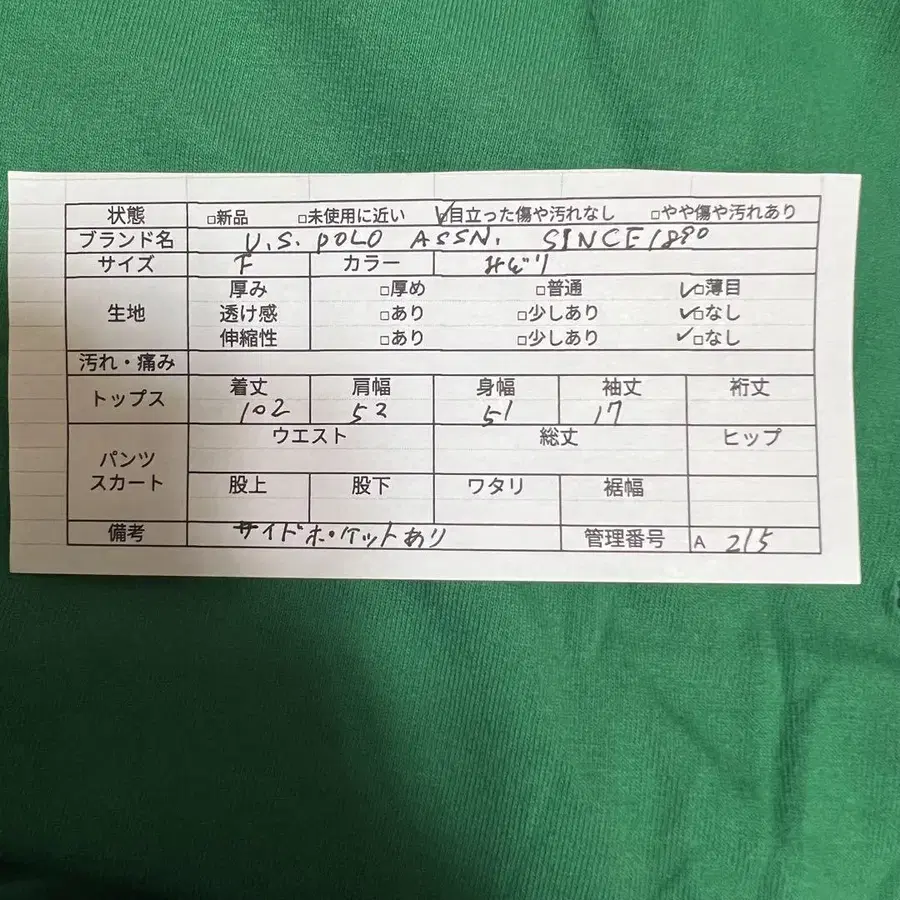 状態 □新品 □未使用に近い ☑目立った傷や汚れなし □やや傷や汚れあり
ブランド名 U.S. POLO ASSN. SINCE 1890
サイズ F カラー みどり
生地 厚み □厚め □普通 ✓□薄目
透け感 □あり □少しあり ✓□なし
伸縮性 □あり □少しあり ✓□なし
汚れ・痛み
トップス 着丈 肩幅 身幅 袖丈 裄丈
102 52 51 17
パンツ スカート ウエスト 総丈 ヒップ
股上 股下 ワタリ 裾幅
備考 サイドポケットあり 管理番号 A 215